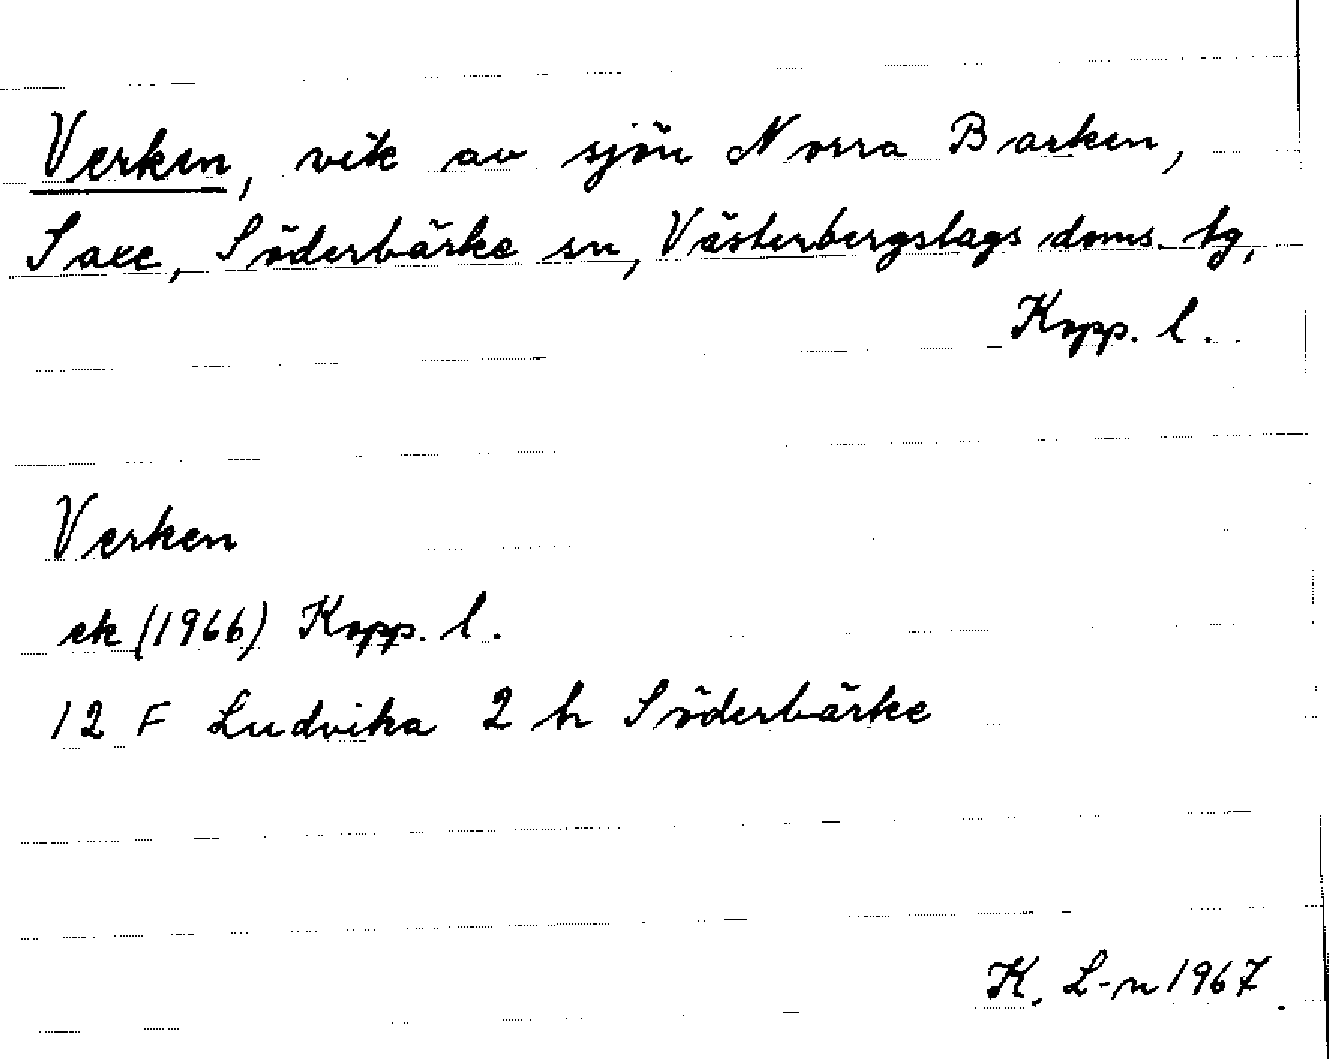 Verken, vik av sjön Norra Barken,
Saxe, Söderbärke sn, Västerbergslags doms. tg,
Kopp. l.
Verken
ek (1966) Kopp. l.
12 F Ludvika 2 h Söderbärke
K. L-n 1967.